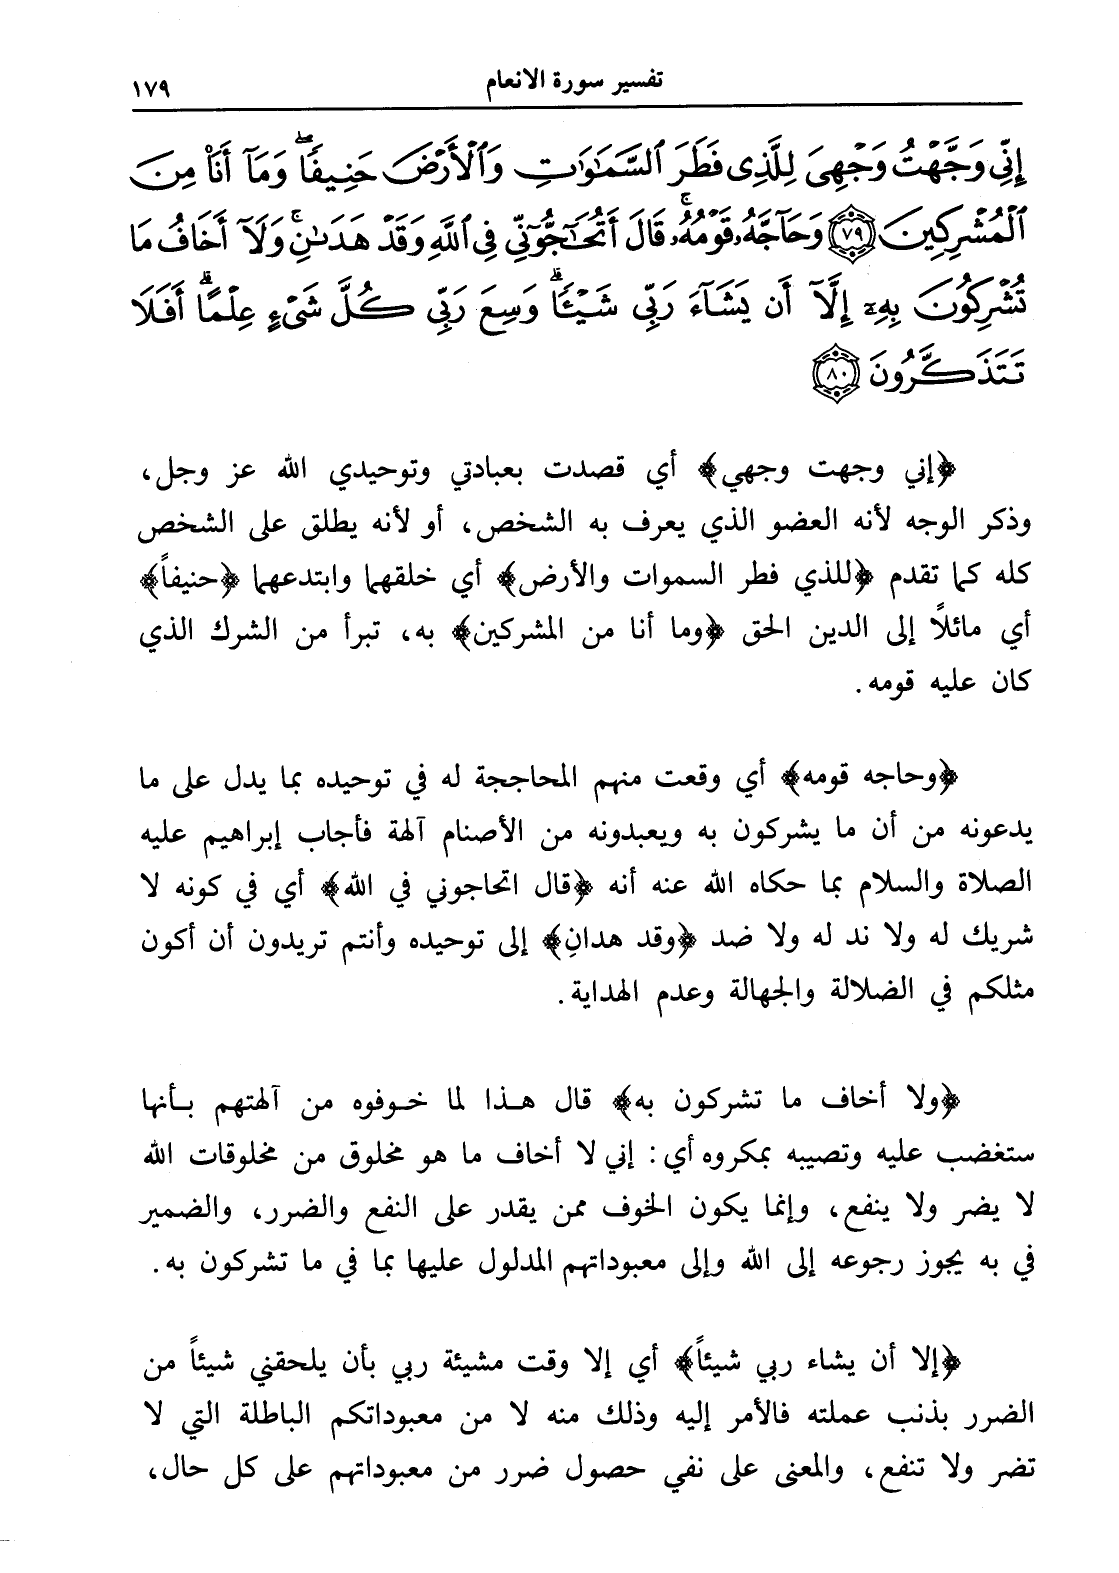 تفسير سورة الانعام ١٧٩
إِنِّي وَجَّهْتُ وَجْهِيَ لِلَّذِي فَطَرَ السَّمَٰوَٰتِ وَٱلْأَرْضَ حَنِيفًاۖ وَمَآ أَنَا۠ مِنَ
ٱلْمُشْرِكِينَ ﴿٧٩﴾ وَحَآجَّهُۥ قَوْمُهُۥۚ قَالَ أَتُحَٰٓجُّوٓنِّي فِي ٱللَّهِ وَقَدْ هَدَىٰنِۚ وَلَآ أَخَافُ مَا
تُشْرِكُونَ بِهِۦٓ إِلَّآ أَن يَشَآءَ رَبِّي شَيْـًٔاۗ وَسِعَ رَبِّي كُلَّ شَيْءٍ عِلْمًاۗ أَفَلَا
تَتَذَكَّرُونَ ﴿٨٠﴾
﴿إني وجهت وجهي﴾ أي قصدت بعبادتي وتوحيدي الله عز وجل،
وذكر الوجه لأنه العضو الذي يعرف به الشخص، أو لأنه يطلق على الشخص
كله كما تقدم ﴿للذي فطر السموات والأرض﴾ أي خلقهما وابتدعهما ﴿حنيفاً﴾
أي مائلاً إلى الدين الحق ﴿وما أنا من المشركين﴾ به، تبرأ من الشرك الذي
كان عليه قومه.
﴿وحاجه قومه﴾ أي وقعت منهم المحاججة له في توحيده بما يدل على ما
يدعونه من أن ما يشركون به ويعبدونه من الأصنام آلهة فأجاب إبراهيم عليه
الصلاة والسلام بما حكاه الله عنه أنه ﴿قال اتحاجوني في الله﴾ أي في كونه لا
شريك له ولا ند له ولا ضد ﴿وقد هدانِ﴾ إلى توحيده وأنتم تريدون أن أكون
مثلكم في الضلالة والجهالة وعدم الهداية.
﴿ولا أخاف ما تشركون به﴾ قال هـذا لما خـوفوه من آلهتهم بـأنها
ستغضب عليه وتصيبه بمكروه أي: إني لا أخاف ما هو مخلوق من مخلوقات الله
لا يضر ولا ينفع، وإنما يكون الخوف ممن يقدر على النفع والضرر، والضمير
في به يجوز رجوعه إلى الله وإلى معبوداتهم المدلول عليها بما في ما تشركون به.
﴿إلا أن يشاء ربي شيئاً﴾ أي إلا وقت مشيئة ربي بأن يلحقني شيئاً من
الضرر بذنب عملته فالأمر إليه وذلك منه لا من معبوداتكم الباطلة التي لا
تضر ولا تنفع، والمعنى على نفي حصول ضرر من معبوداتهم على كل حال،